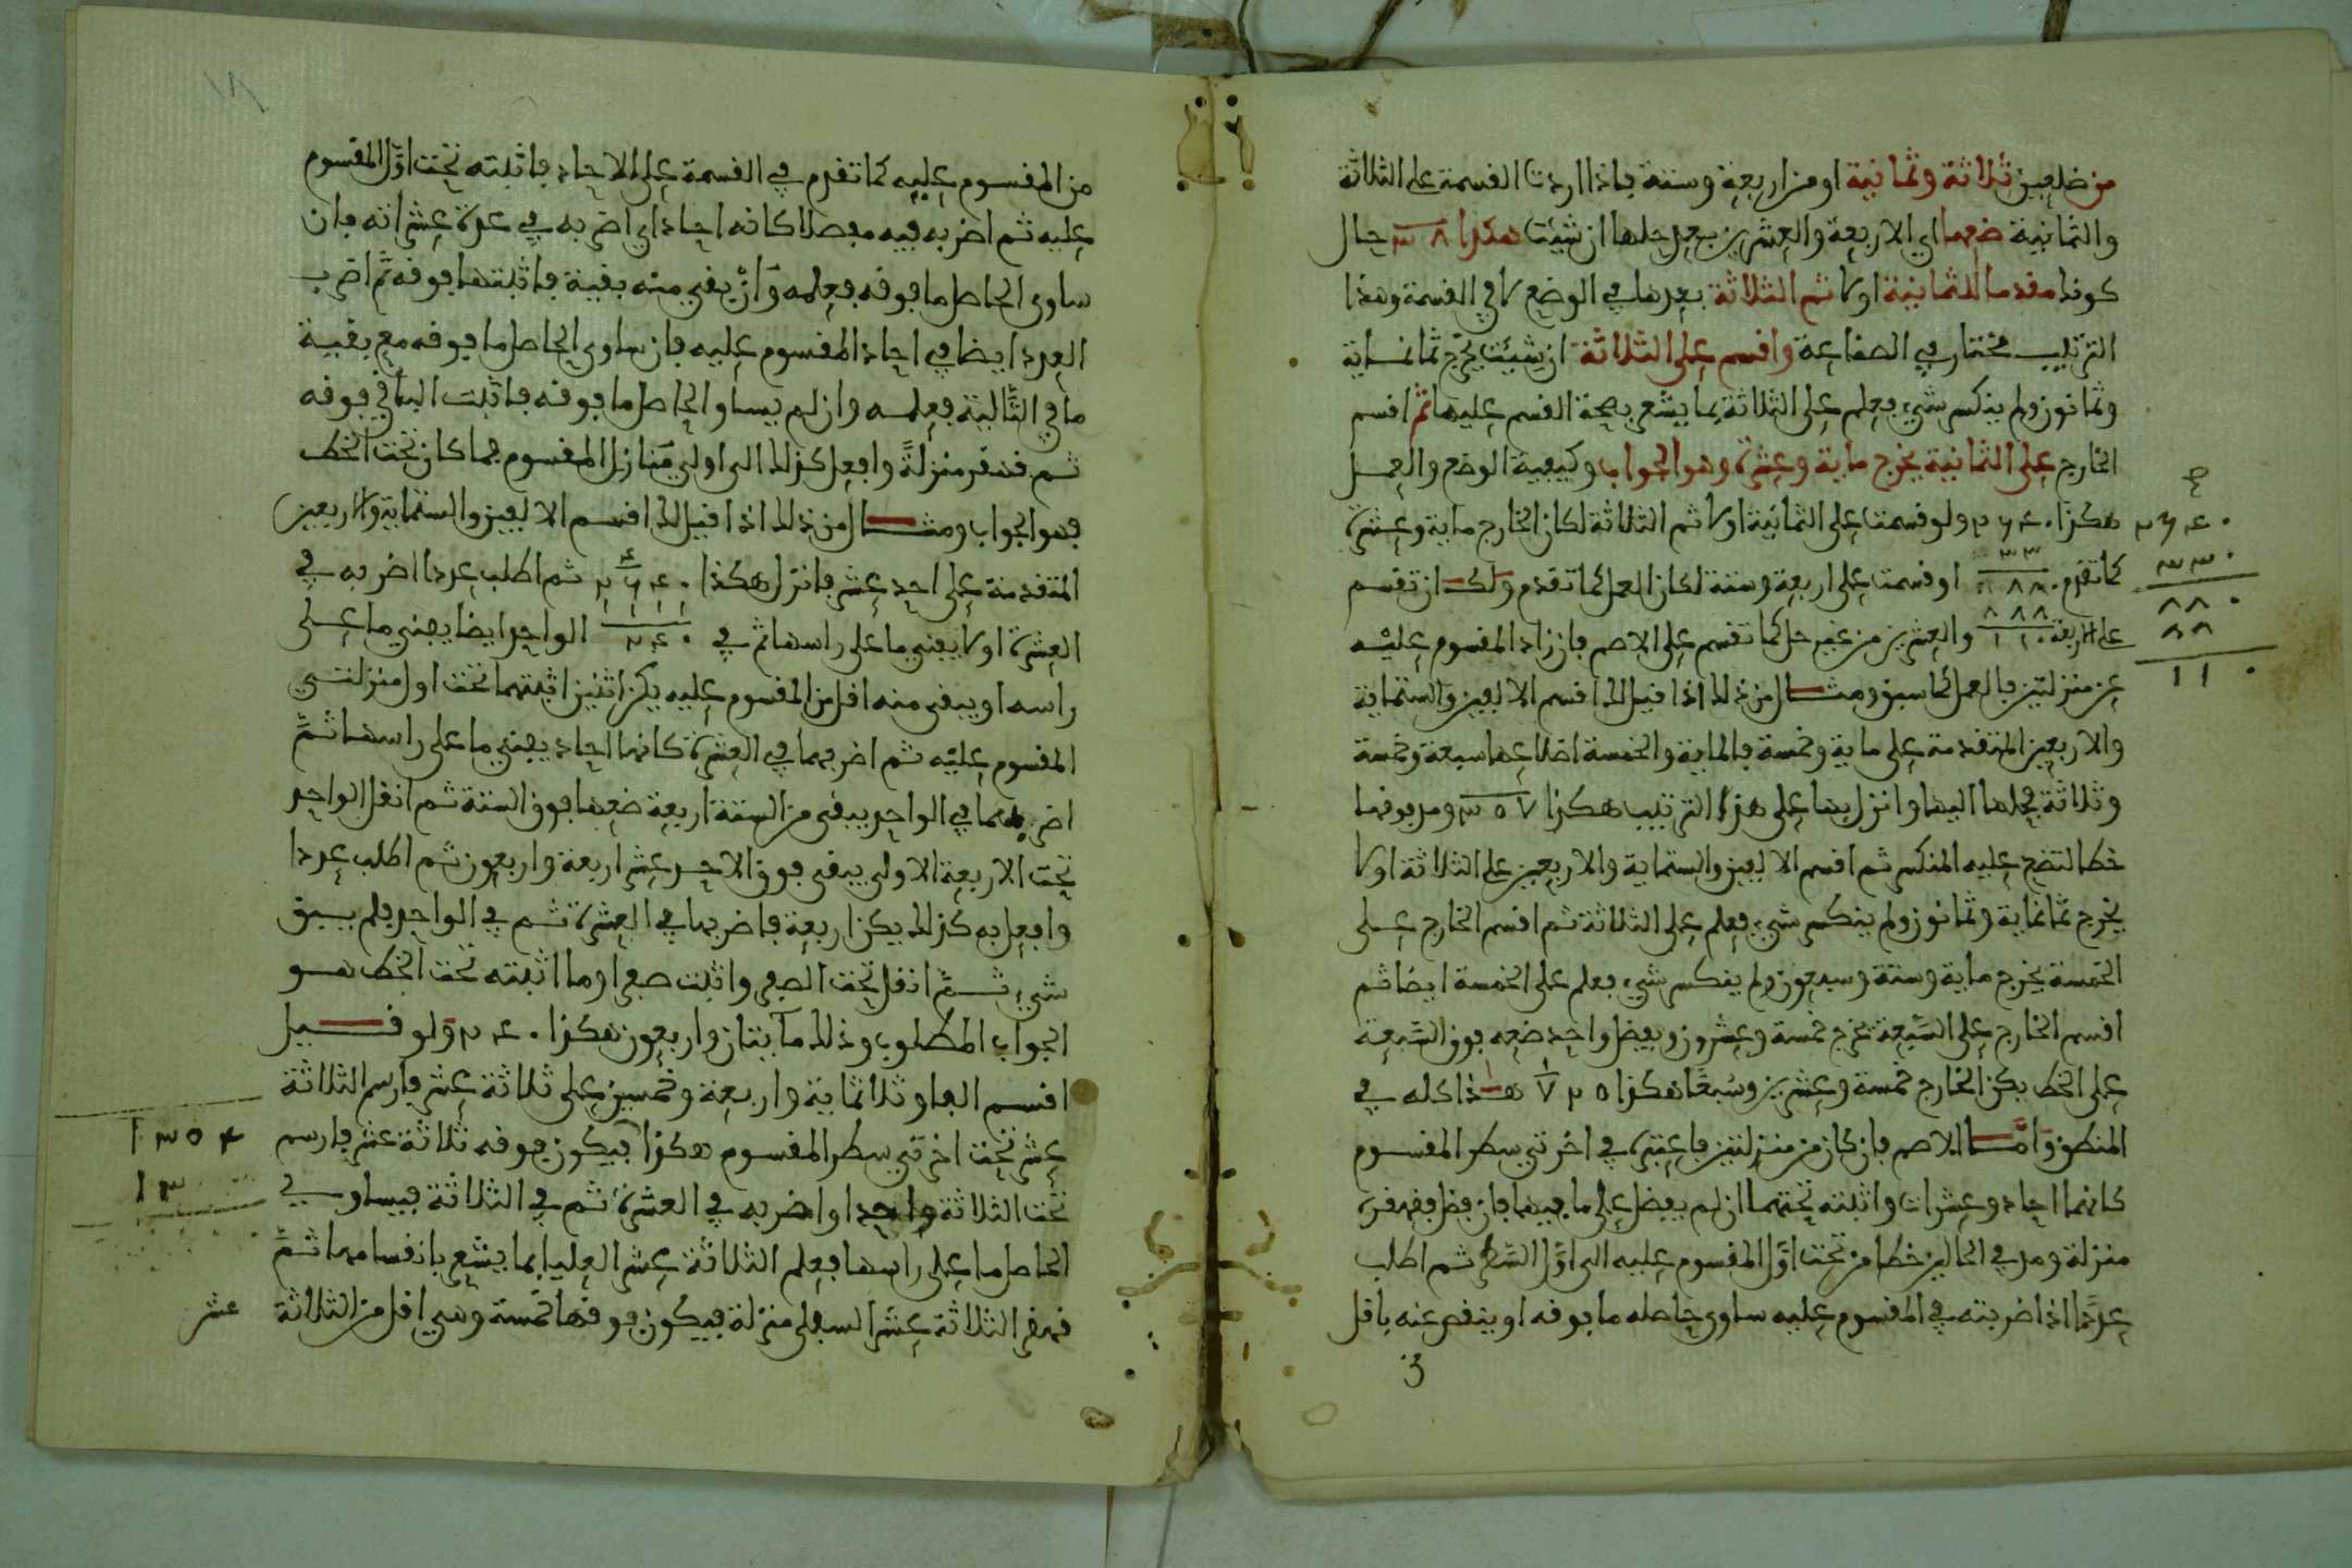 من ضلعين ثلاثة وثمانية او من اربعة وستة فاذا اردت القسمة على الثلاثة
والثمانية ضعهما اي الاربعة والعشرين بعد حلها ان شئت هكذا ٨ ٣ حال
كونك مقدما للثمانية اولا ثم الثلاثة بعدها في الوضع لا في القسمة وهذا
الترتيب مختار في الصناعة واقسم على الثلاثة ان شئت يخرج ثمانماية
وثمانون ولم ينكسر شيء فعلم على الثلاثة بما يشعر بصحة القسم عليها ثم اقسم
الخارج على الثمانية يخرج ماية وعشرة وهو الجواب وكيفية الوضع والعمل
هكذا ٢٦٤٠ ولو قسمت على الثمانية اولا ثم الثلاثة لكان الخارج ماية وعشرة
كما تقدم او قسمت على اربعة وستة لكان العمل كما تقدم ولك ان تقسم
على الاربعة والعشرين من غير حل كما تقسم على الاصم فان زاد المقسوم عليه
عن منزلتين فالعمل كما سبق ومثال من ذلك اذا قيل لك اقسم الالفين والستماية
والاربعين المتقدمة على ماية وخمسة فالماية والخمسة اضلاعها سبعة وخمسة
وثلاثة فحلها اليها وانزل بها على هذا الترتيب هكذا ٧ ٥ ٣ ومد فوقها
خطا لتضع عليه المنكسر ثم اقسم الالفين والستماية والاربعين على الثلاثة اولا
يخرج ثمانماية وثمانون ولم ينكسر شيء فعلم على الثلاثة ثم اقسم الخارج على
الخمسة يخرج ماية وستة وسبعون ولم ينكسر شيء فعلم على الخمسة ايضا ثم
اقسم الخارج على السبعة يخرج خمسة وعشرون ويفضل واحد ضعه فوق السبعة
على الخط يكن الخارج خمسة وعشرين وسبعا هكذا ٢٥ ١ ٧ هذا كله في
المنطق واما الاصم فان كان من منزلتين فاعتبره في اخرتي سطر المقسوم
كانهما احاد وعشرات واثبته تحتهما ان لم يفضل على ما فيها فان فضل فقهقره
منزلة ومد في الحالين خطا من تحت اول المقسوم عليه الى اول السطر ثم اطلب
عددا اذا ضربته في المقسوم عليه ساوى حاصله ما فوقه او ينقص عنه باقل
٢٦٤٠
٣٣٠
٨٨٠
٨٨
١١٠
من المقسوم عليه كما تقدم في القسمة على الاحاد فاثبته تحت اول المقسوم
عليه ثم اضربه فيه مفصلا كانه احاد اي اضربه في عدة عشراته فان
ساوى الحاصل ما فوقه فعلمه وان يبقى منه بقية فاثبتها فوقه ثم اضرب
العدد ايضا في احاد المقسوم عليه فان ساوى الحاصل ما فوقه مع بقية
ما في التالية فعلمه وان لم يساو الحاصل ما فوقه فاثبت الباقي فوقه
ثم قهقر منزلة وافعل كذلك الى اولى منازل المقسوم فما كان تحت الخط
فهو الجواب ومثال من ذلك اذا قيل لك اقسم الالفين والستماية والاربعين
المتقدمة على احد عشر فانزل هكذا ٢٦٤٠ ثم اطلب عددا اضربه في
العشرة اولا يفني ما على راسها ثم في ٢٤٠ الواحد ايضا يفني ما على
راسه او يبقى منه اقل من المقسوم عليه يكن اثنين اثبتهما تحت اول منزلتي
المقسوم عليه ثم اضربهما في العشرة كانها احاد يفني ما على راسها ثم
اضربهما في الواحد يبقى من الستة اربعة ضعها فوق الستة ثم انقل الواحد
تحت الاربعة الاولى يبقى فوق الاحد عشر اربعة واربعون ثم اطلب عددا
وافعل به كذلك يكن اربعة فاضربها في العشرة ثم في الواحد فلم يبق
شيء ثم انقل تحت الصفر واثبت صفرا وما اثبته تحت الخط هو
الجواب المطلوب وذلك مائتان واربعون هكذا ٢٤٠ ولو قيل
اقسم الفا وثلاثماية واربعة وخمسين على ثلاثة عشر فارسم الثلاثة
عشر تحت اخرتي سطر المقسوم هكذا فيكون فوقه ثلاثة عشر فارسم
تحت الثلاثة واحدا واضربه في العشرة ثم في الثلاثة فيساوي
الحاصل ما على راسها فعلم الثلاثة عشر العليا بما يشعر بانقسامها ثم
قهقر الثلاثة عشر السفلى منزلة فيكون فوقها خمسة وهي اقل من الثلاثة
١٣٥٤
١٣
عشر